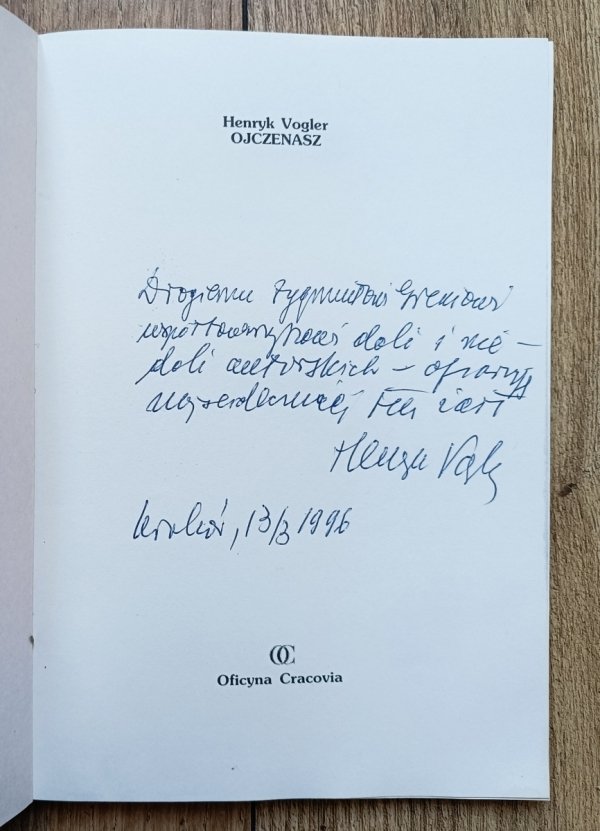 Henryk Vogler
OJCZENASZ
Drogiemu Zygmuntowi Greniowi
współtowarzyszowi doli i nie–
doli autorskich – ofiaruję
najserdeczniej ten żart
Henryk Vogler
Kraków, 13/3 1996
OC
Oficyna Cracovia